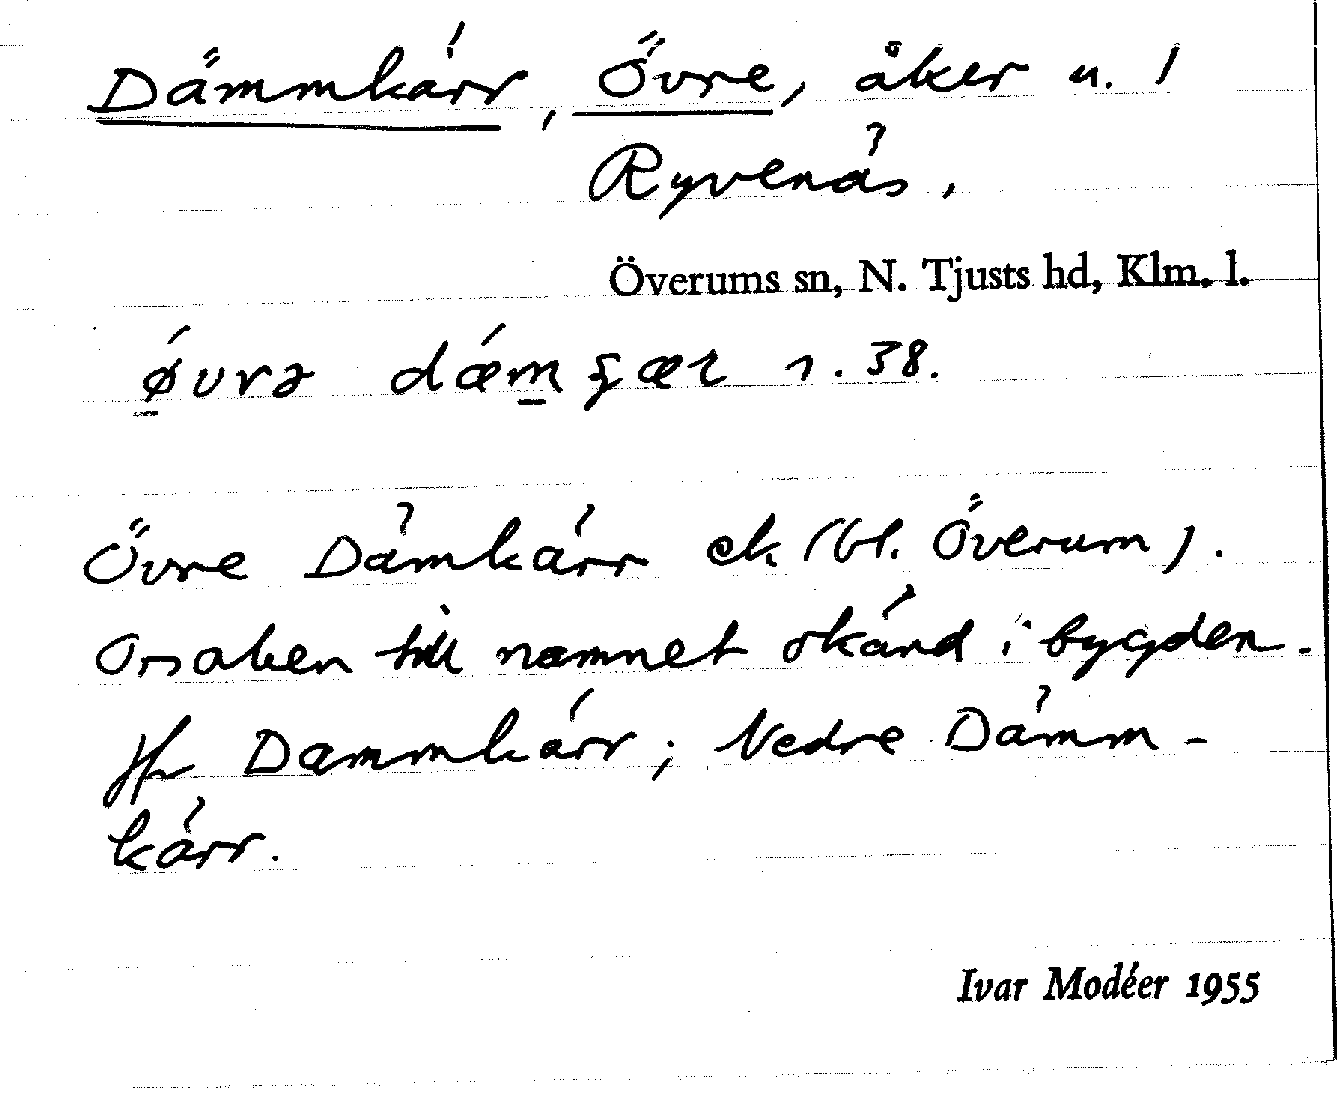 Dämmkärr, Övre, åker u. 1
Ryvenäs.
Överums sn, N. Tjusts hd, Klm. l.
Övre Dämkärr ek (bl. Överum).
Orsaken till namnet okänd i bygden.
Jfr Dammkärr; Nedre Dämm-
kärr.
Ivar Modéer 1955